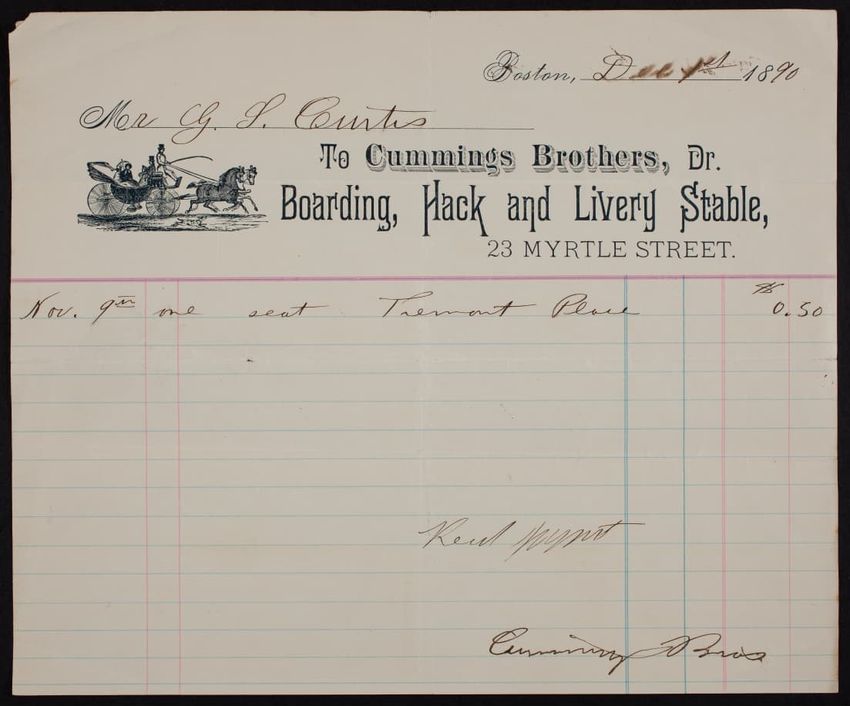 Boston, Dec 1st 1890
Mr G. S. Curtis
To Cummings Brothers, Dr.
Boarding, Hack and Livery Stable,
23 MYRTLE STREET.
$
Nov. 9th one seat Tremont Place 0.50
Recd paymt
Cummings Bros